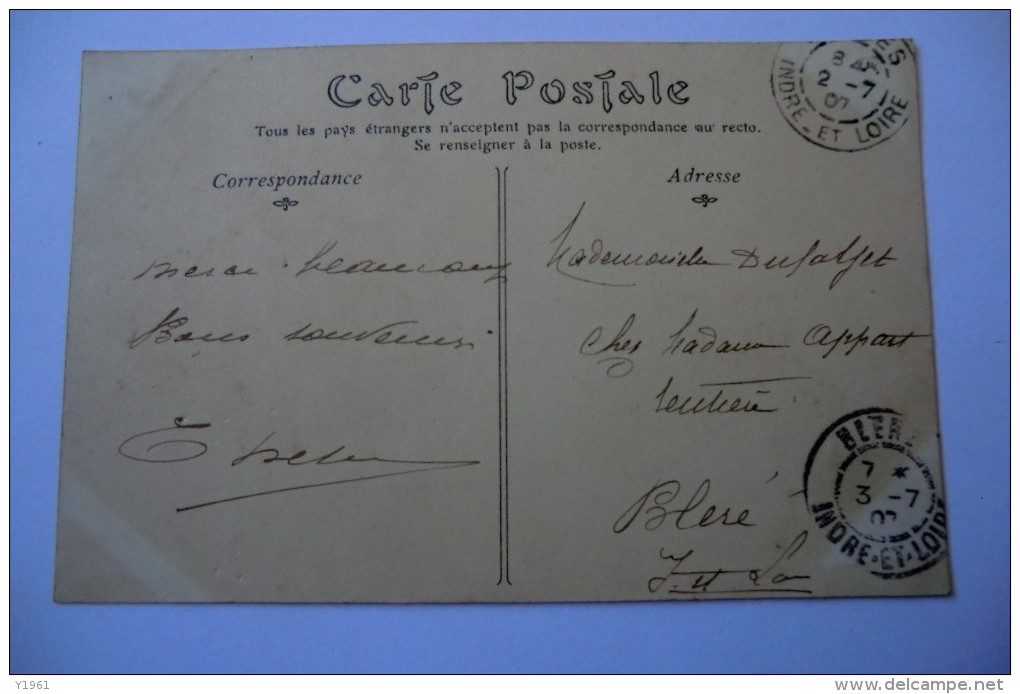 Carte Postale
Tous les pays étrangers n'acceptent pas la correspondance au recto.
Se renseigner à la poste.
Correspondance
Adresse
ES
8
2 -7
07
INDRE-ET LOIRE
merci beaucoup
Bons souvenirs
Mademoiselle
Chez Madame Appart
rentière
Bléré
I. et L
BLERE
7 *
3 -7
07
INDRE-ET-LOIRE
Y1961
www.delcampe.net